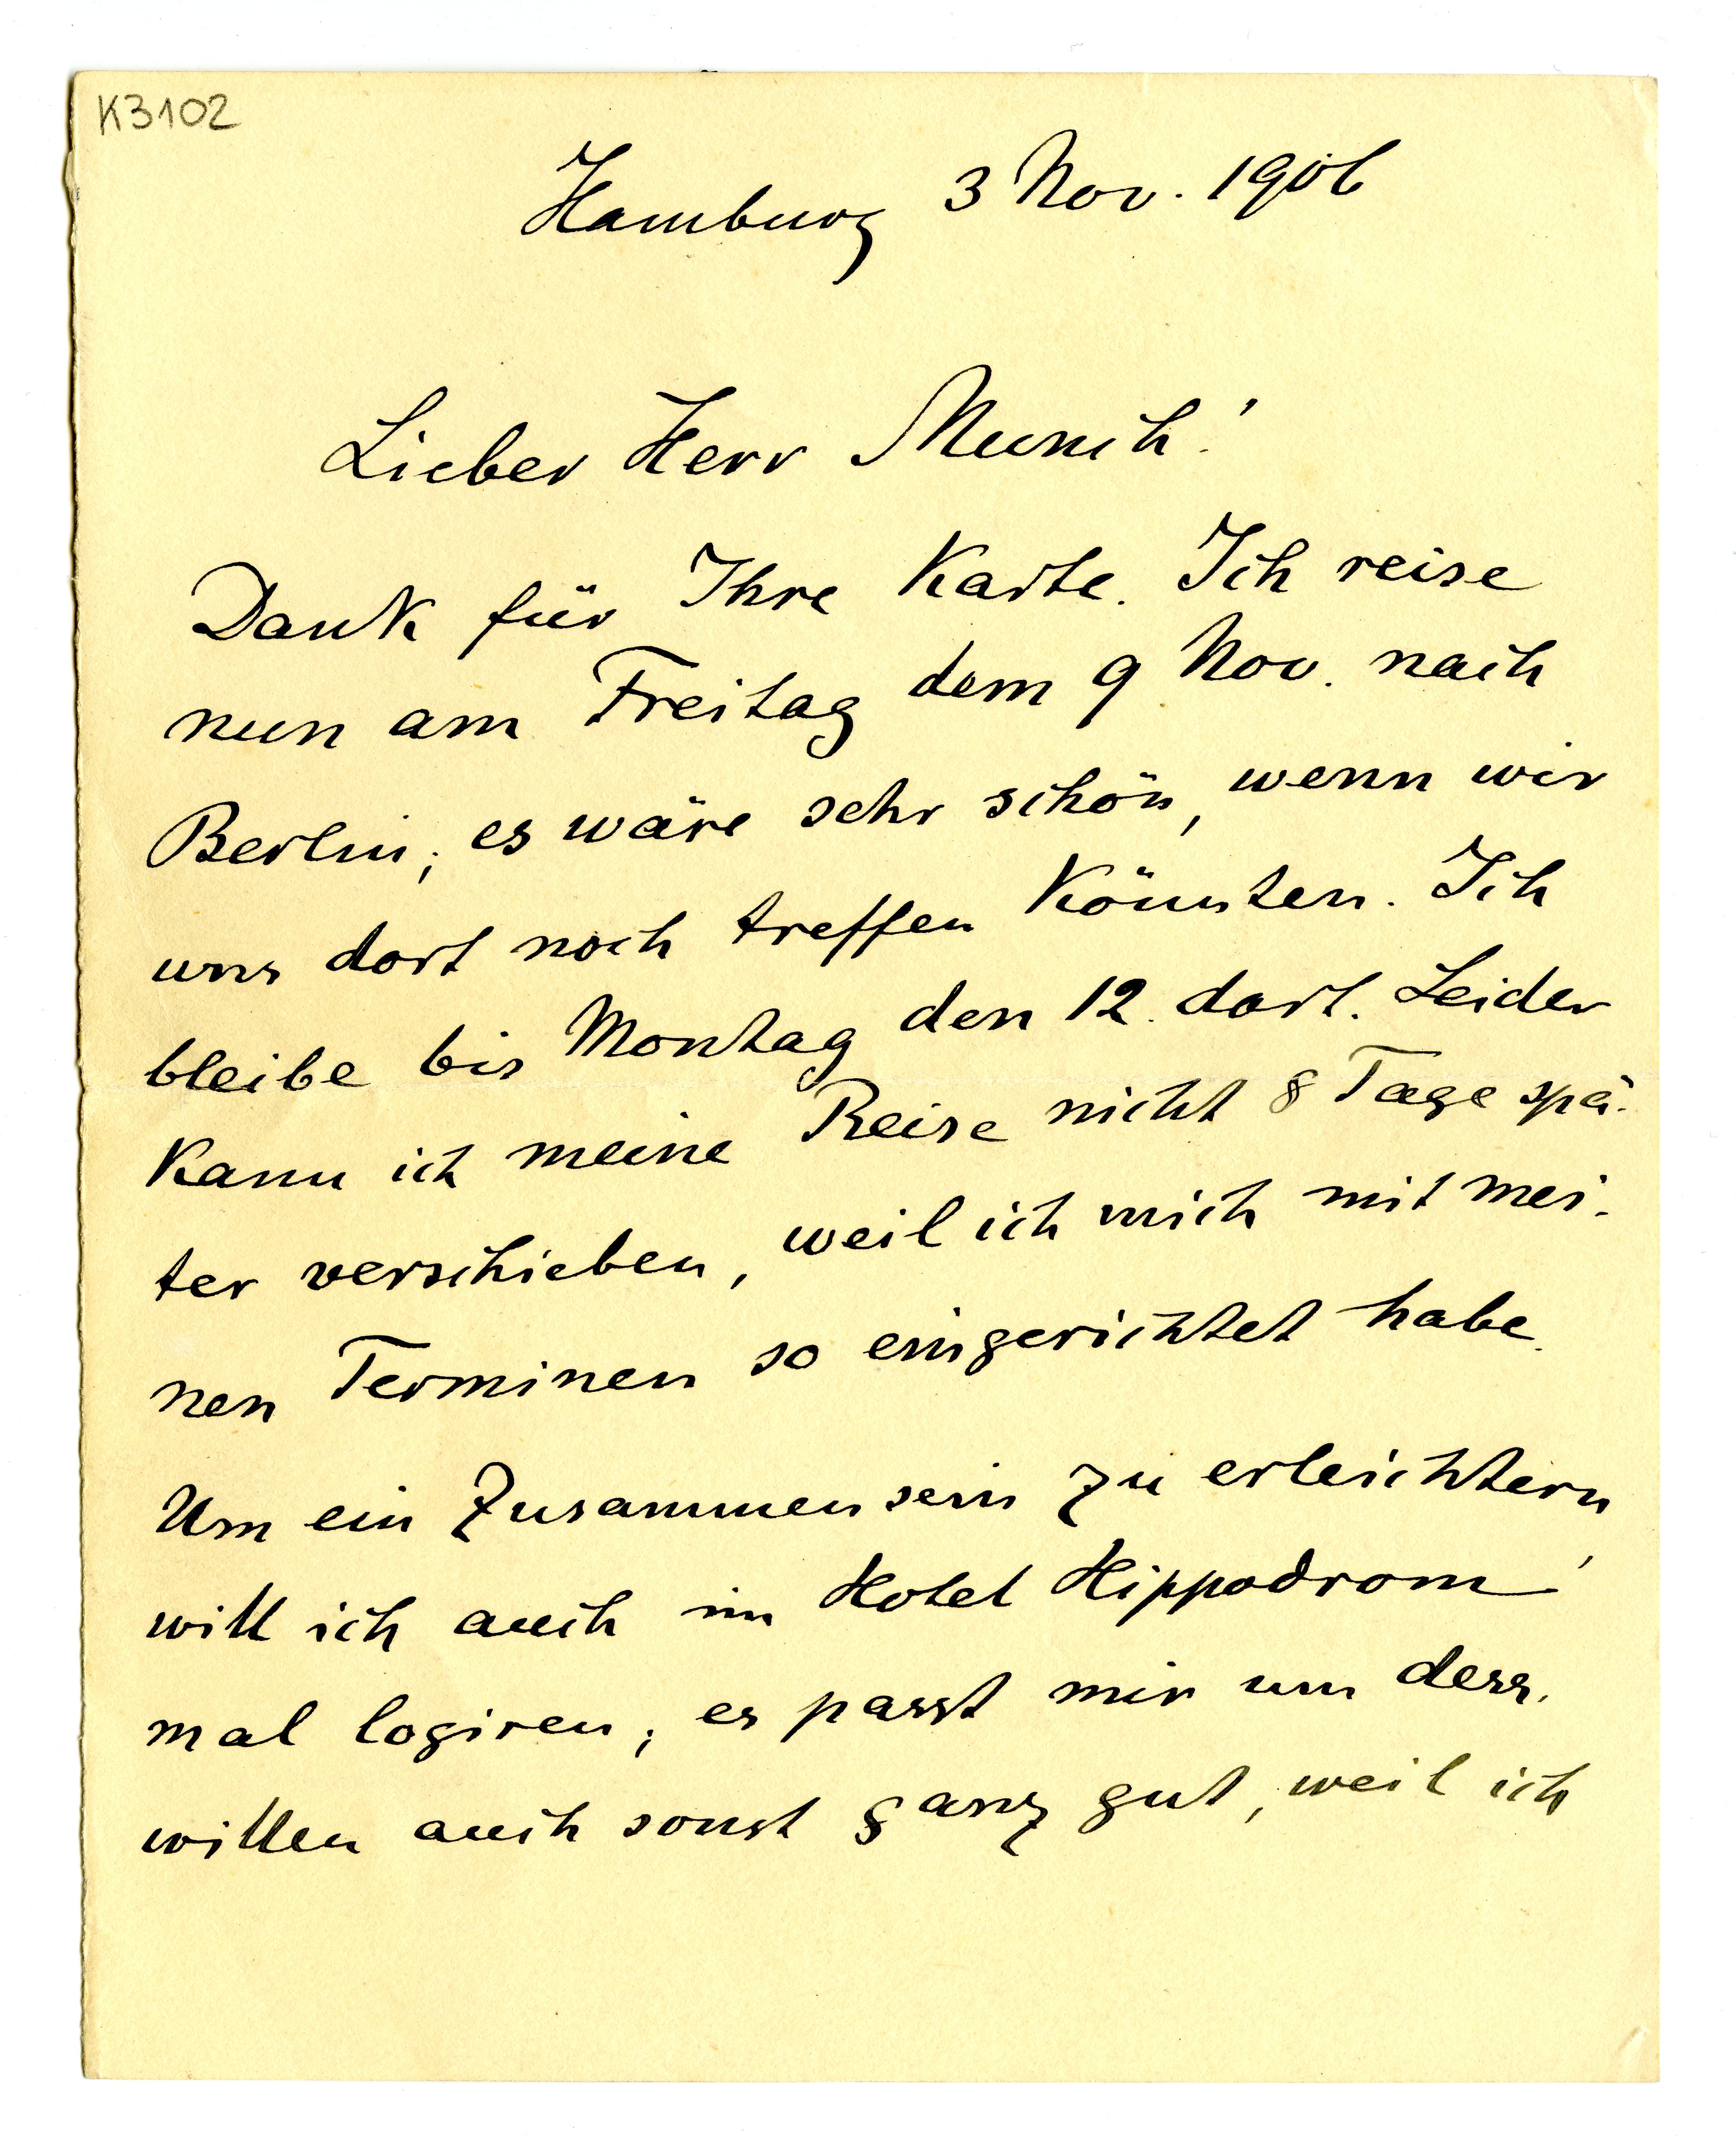 K3102
Hamburg 3 Nov. 1906
Lieber Herr Munch!
Dank für Ihre Karte. Ich reise
nun am Freitag dem 9 Nov. nach
Berlin; es wäre sehr schön, wenn wir
uns dort noch treffen könnten. Ich
bleibe bis Montag den 12. dort. Leider
kann ich meine Reise nicht 8 Tage spä-
ter verschieben, weil ich mich mit mei-
nen Terminen so eingerichtet habe.
Um ein Zusammensein zu erleichtern,
will ich auch im Hotel Hippodrom
mal logiren; es passt mir um dess.
willen auch sonst ganz gut, weil ich